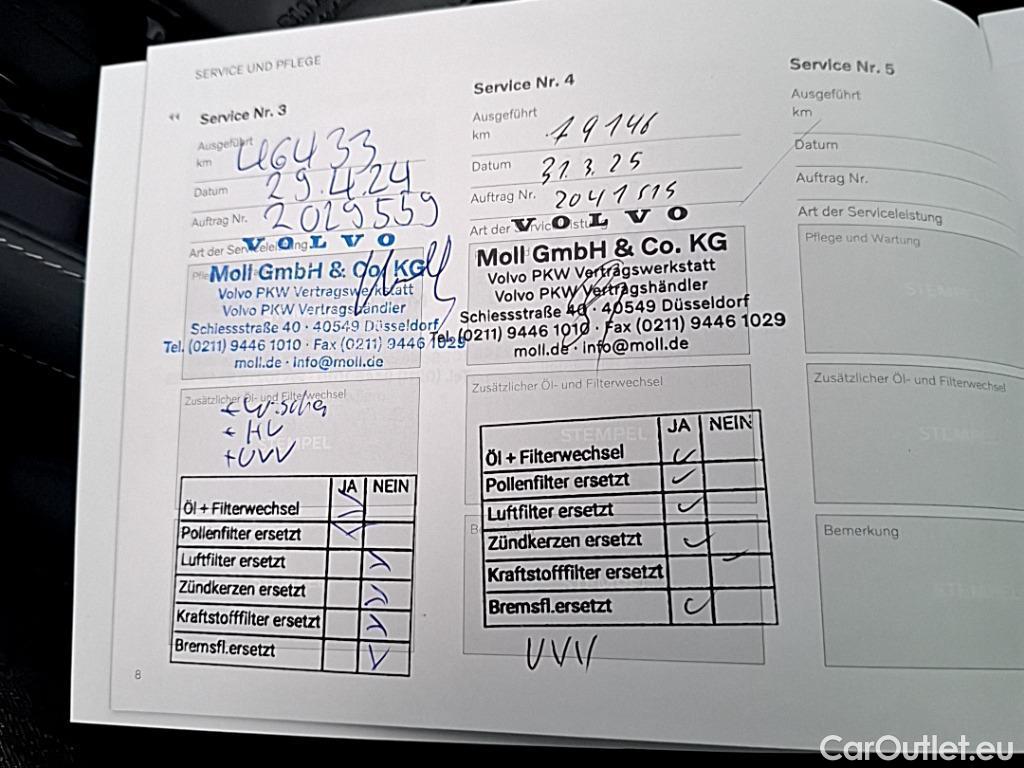 SERVICE UND PFLEGE
Service Nr. 3
Ausgeführt
km 46433
Datum 29.4.24
Auftrag Nr. 2029559
Art der Serviceleistung
VOLVO
Moll GmbH & Co. KG
Volvo PKW Vertragswerkstatt
Volvo PKW Vertragshändler
Schiessstraße 40 · 40549 Düsseldorf
Tel. (0211) 9446 1010 · Fax (0211) 9446 1029
moll.de · info@moll.de
Zusätzlicher Öl- und Filterwechsel
+ HU
+ UVV
STEMPEL
JA NEIN
Öl + Filterwechsel
Pollenfilter ersetzt
Luftfilter ersetzt
Zündkerzen ersetzt
Kraftstofffilter ersetzt
Bremsfl.ersetzt
8
Service Nr. 4
Ausgeführt
km 79146
Datum 31.3.25
Auftrag Nr. 2041515
Art der
VOLVO
Moll GmbH & Co. KG
Volvo PKW Vertragswerkstatt
Volvo PKW Vertragshändler
Schiessstraße 40 · 40549 Düsseldorf
Tel. (0211) 9446 1010 · Fax (0211) 9446 1029
moll.de · info@moll.de
Zusätzlicher Öl- und Filterwechsel
STEMPEL
JA NEIN
Öl + Filterwechsel
Pollenfilter ersetzt
Luftfilter ersetzt
Zündkerzen ersetzt
Kraftstofffilter ersetzt
Bremsfl.ersetzt
UVV
Service Nr. 5
Ausgeführt
km
Datum
Auftrag Nr.
Art der Serviceleistung
Pflege und Wartung
Zusätzlicher Öl- und Filterwechsel
Bemerkung
CarOutlet.eu